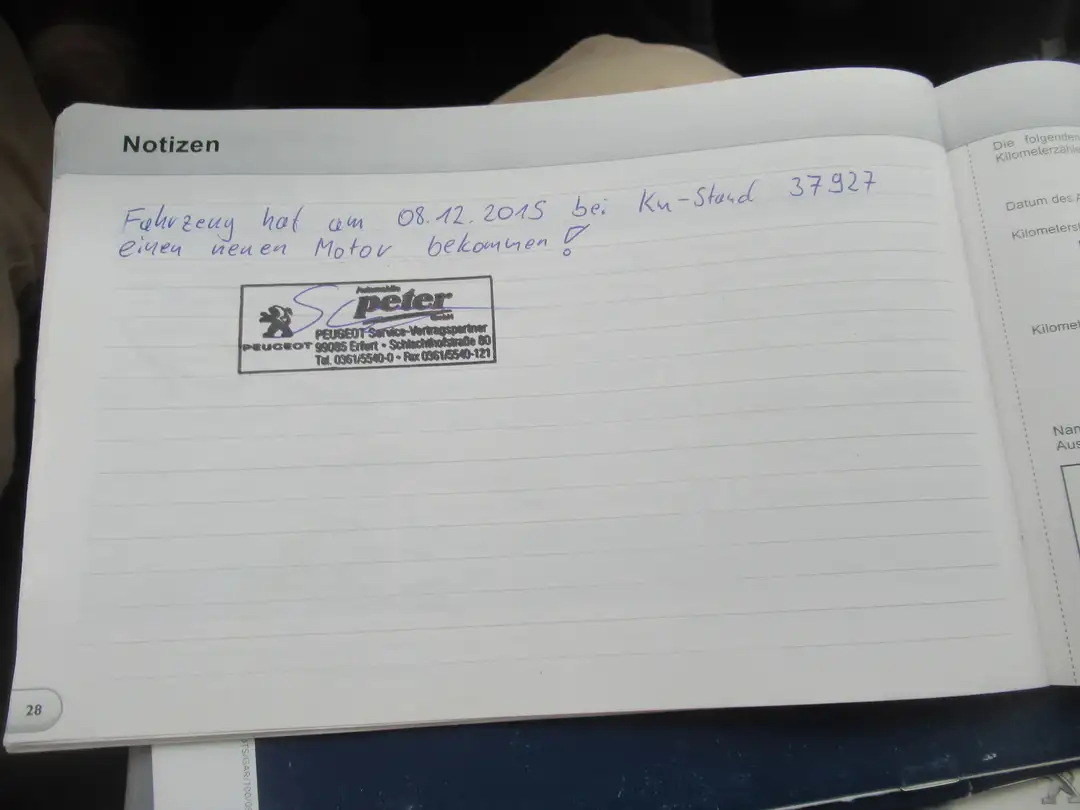 Notizen
Fahrzeug hat am 08.12.2015 bei Km-Stand 37927
einen neuen Motor bekommen!
Automobile
peter
GmbH
PEUGEOT
PEUGEOT Service-Vertragspartner
99085 Erfurt • Schlachthofstraße 80
Tel. 0361/5540-0 • Fax 0361/5540-121
28
Die folgenden
Kilometerzähle
Datum des
Kilometerst
Kilomet
Nam
Aus